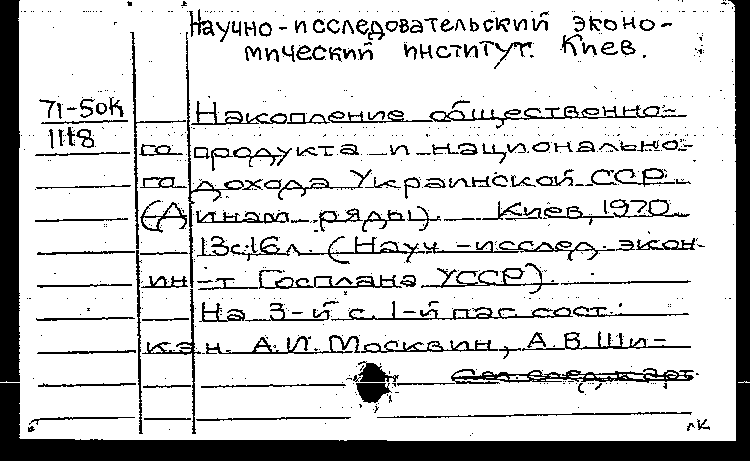 Научно-исследовательский эконо-
мический институт. Киев.
71-50к
1118
Накопление общественно-
го продукта и национально-
го дохода Украинской ССР.
(Динам. ряды). Киев, 1970.
13с;16л. (Науч.-исслед. экон.
ин-т Госплана УССР).
На 3-й с. 1-й паг. сост.:
к.э.н. А.И. Москвин, А.В. Ши-
См. след. карт.
лк